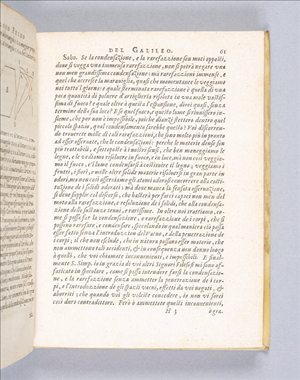 DEL GALILEO. 61
Salu. Se la condensazione, e la rarefazzione son moti opposti,
doue si vegga vna immensa rarefazzione, non si potrà negare vna
non men grandissima condensazione: mà rarefazzioni immense, e
quel che accresce la marauiglia, quasi che momentanee le veggiamo
noi tutto 'l giorno: e quale sterminata rarefazzione è quella di vna
poca quantità di poluere d'artiglieria risoluta in vna mole vastissi-
ma di fuoco? e quale oltre à questa l'espansione, direi quasi, senza
termine della sua luce? E se quel fuoco, e questo lume si riunissero in-
sieme, che pur non è impossibile,
piccolo spazio, qual condensamento sarebbe questo? Voi discorren-
do trouerrete mille di tali rarefazzioni, che sono molto più in pronto
ad esser osseruate, che le condensazioni: perche le materie dense son
più trattabili, e sottoposte à i nostri sensi, che ben maneggiamo le
legne, e le vediamo risoluere in fuoco, e in luce, mà non così veggia-
mo il fuoco, e 'l lume condensarsi à costituire il legno; veggiamo i
frutti, i fiori, e mille altre solide materie risoluersi in gran parte in
odori, mà non così osseruiamo gli atomi odorosi concorrere alla costitu-
zione de i solidi odorati: mà doue manca la sensata osseruazione,
si deue supplir col discorso, che basterà per farci capaci non men del
moto alla rarefazzione, e resoluzione de i solidi, che alla condensa-
zione delle sustanze tenui, e rarissime. In oltre noi trattiamo, co-
me si possa far la condensazione, e rarefazzione de i corpi, che si
possono rarefare, e condensare, specolando in qual maniera ciò possa
esser fatto senza l'introduzzion del vacuo, e della penetrazione de
i corpi; il che non esclude, che in natura possano esser materie, che
non ammettono tali accidenti, & in conseguenza non danno luogo
à quelli, che voi chiamate inconuenienti, e impossibili. E final-
mente S. Simp. io in grazia di voi altri Signori Filosofi mi sono af-
faticato in specolare, come si possa intendere farsi la condensazio-
ne, e la rarefazzione senza ammetter la penetrazione de i cor-
pi, e l'introduzzione de gli spazii vacui, effetti da voi negati, &
aborriti; che quando voi gli voleste concedere, io non vi sarei
così duro contradittore. Però ò ammettete questi inconuenienti,
H 3 ò gra-